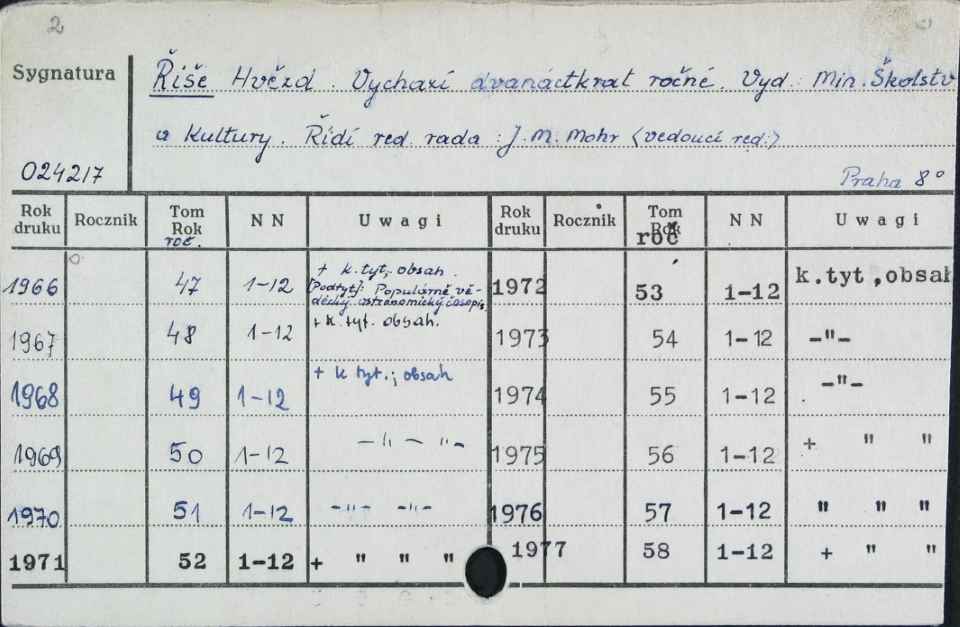 2
Sygnatura
Říše Hvězd. Vychazí dvanáctkrat ročné. Vyd: Min. Školstv
a Kultury. Řídí red. rada: J. M. Mohr (vedoucí red.)
024217
Praha 8°
Rok druku Rocznik Tom Rok roč. NN Uwagi Rok druku Rocznik Tom Rok roč NN Uwagi
1966 47 1-12 + k. tyt, obsah. [Podtyt]: Populárně vě-
decký astronomický časopis 1972 53 1-12 k.tyt,obsah
1967 48 1-12 + k. tyt. obsah. 1973 54 1-12 -"-
1968 49 1-12 + k tyt.; obsah 1974 55 1-12 -"-
1969 50 1-12 -"- "- 1975 56 1-12 + " "
1970 51 1-12 -"- -"- 1976 57 1-12 " " "
1971 52 1-12 + " " " 1977 58 1-12 + " "